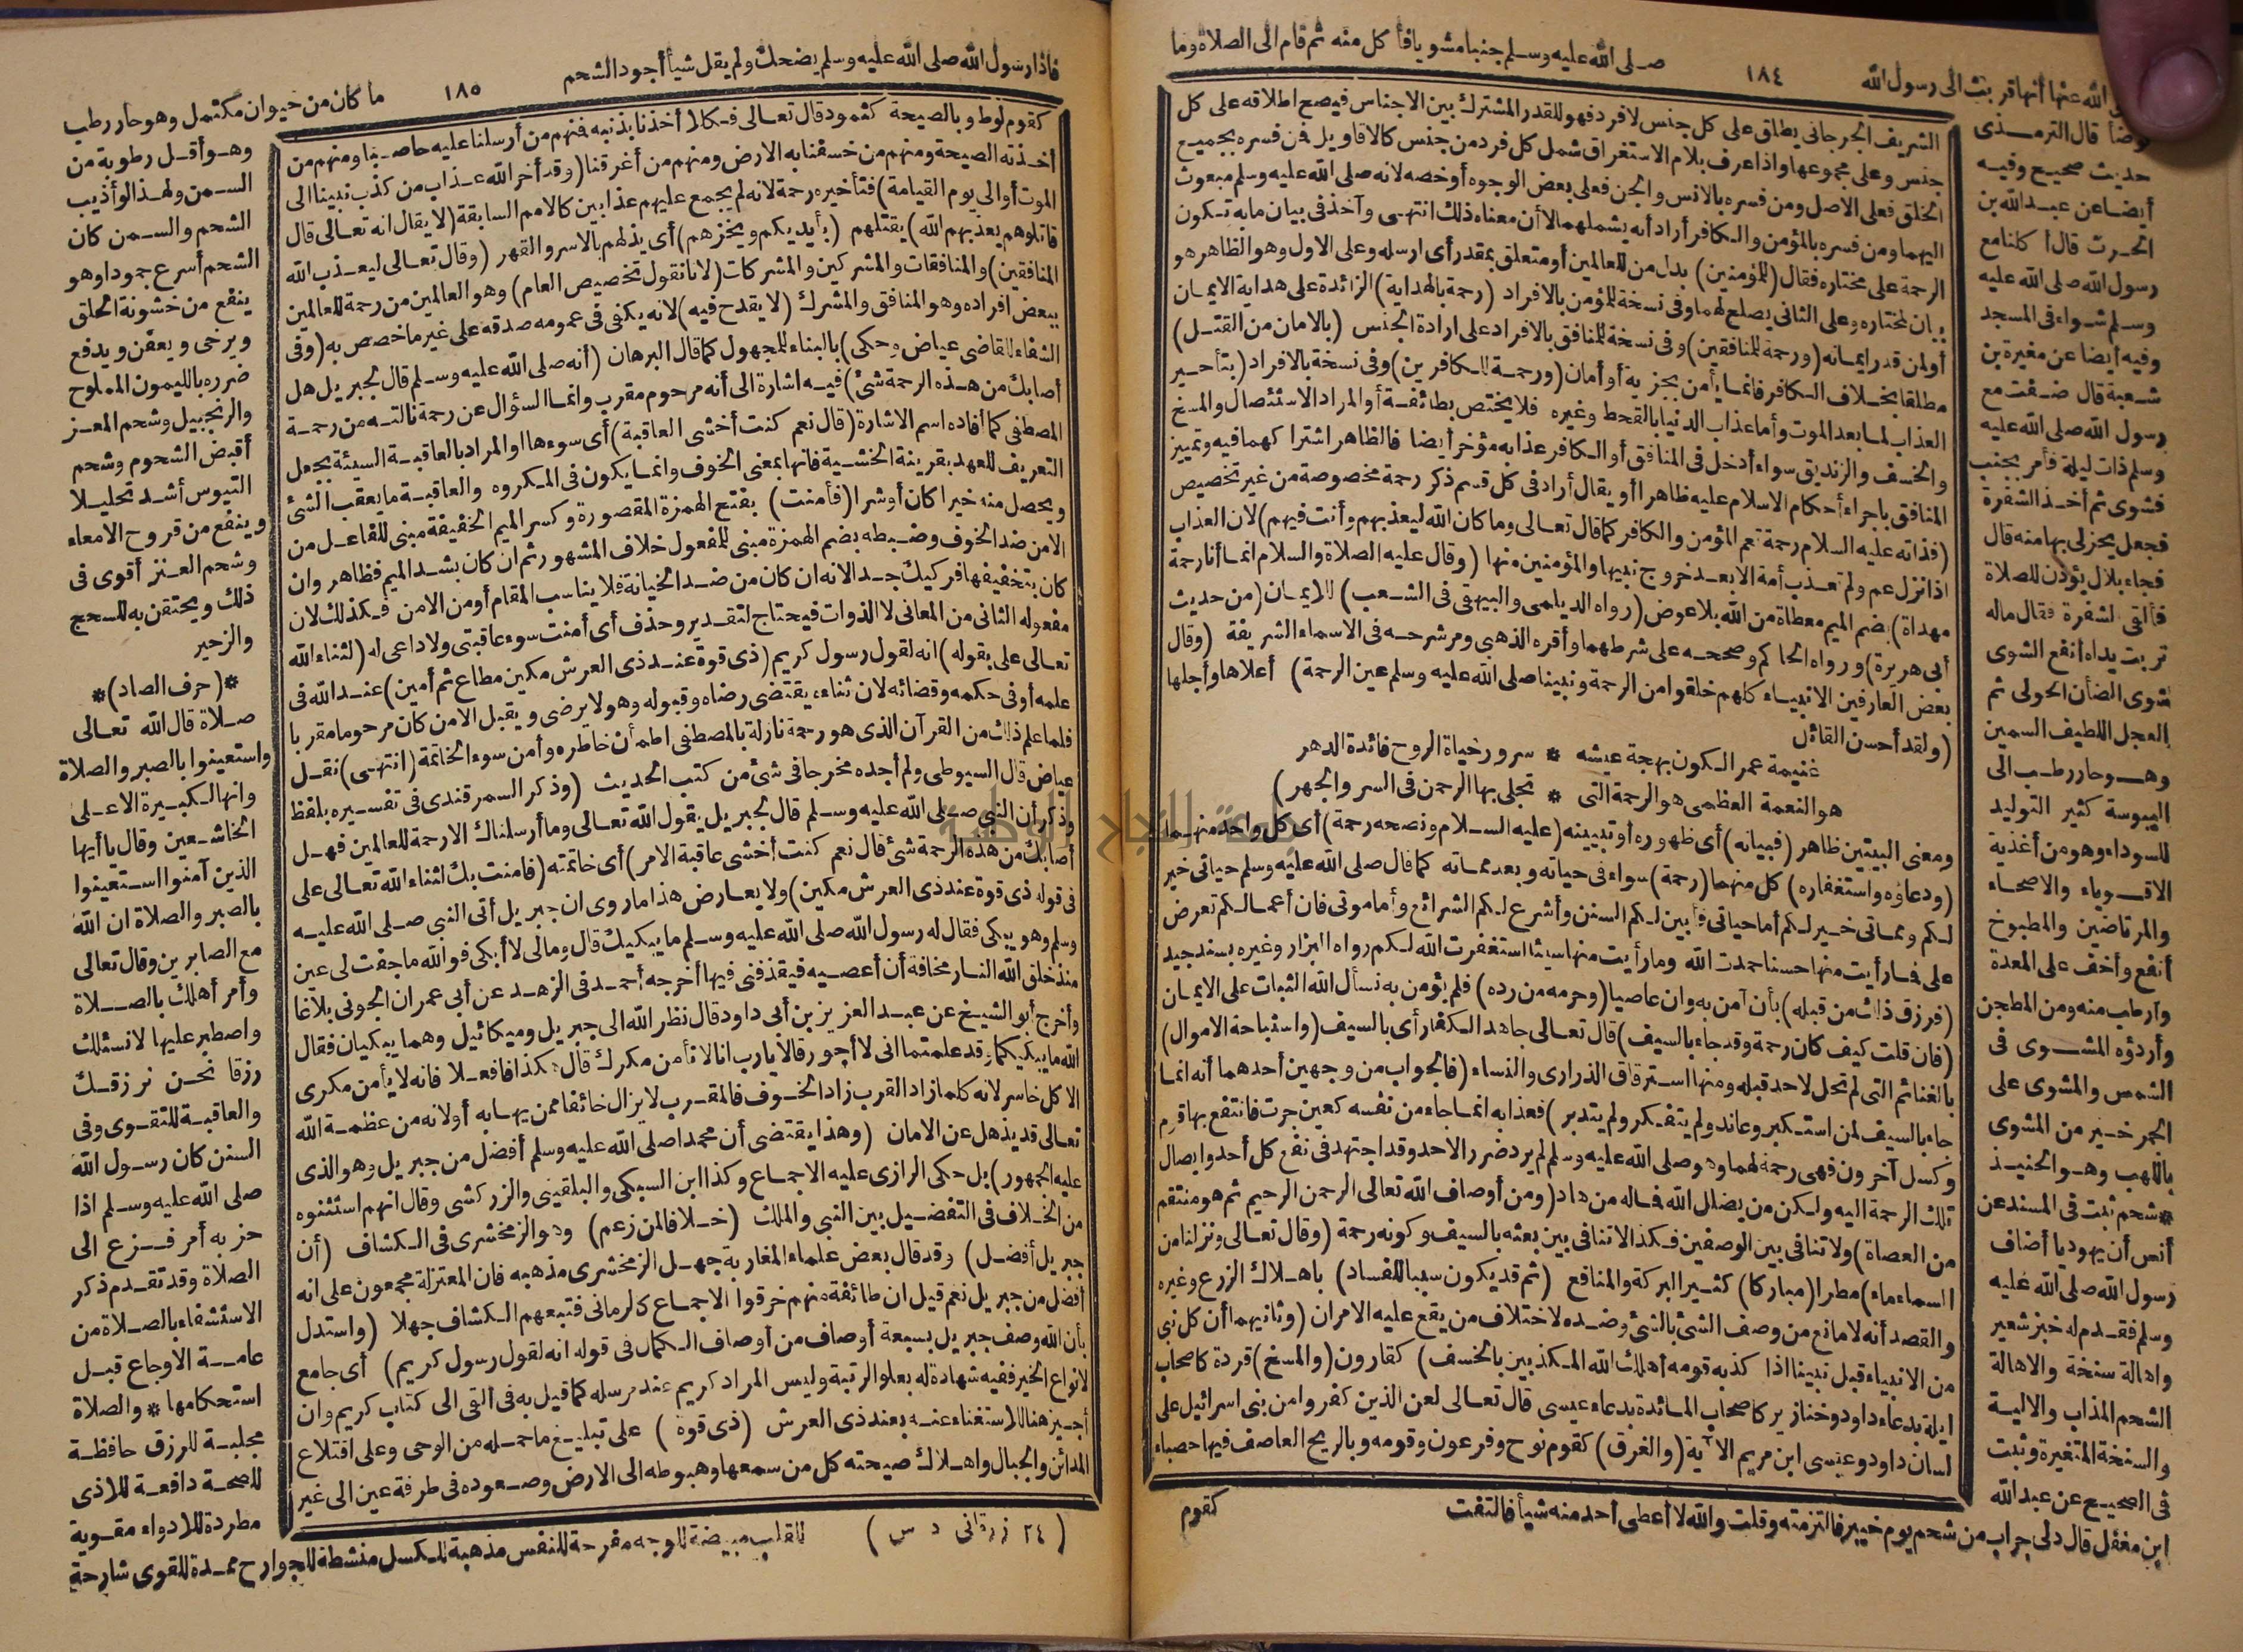 صلى الله عليه وسلم جنبا مشويا فأكل منه ثم قام الى الصلاة وما
١٨٤
الله عنها أنها قربت الى رسول الله
توضأ قال الترمذى
حديث صحيح وفيه
أيضا عن عبد الله بن
الحرث قال أكلنا مع
رسول الله صلى الله عليه
وسلم شواء فى المسجد
وفيه أيضا عن مغيرة بن
شعبة قال ضفت مع
رسول الله صلى الله عليه
وسلم ذات ليلة فأمر بجنب
فشوى ثم أخذ الشفرة
فجعل يحزلى بها منه قال
فجاء بلال يؤذن للصلاة
فألقى الشفرة فقال ماله
تربت يداه أنفع الشوى
شوى الضأن الحولى ثم
العجل اللطيف السمين
وهو حار رطب الى
اليبوسة كثير التوليد
للسوداء وهو من أغذية
الاقوياء والاصحاء
والمرتاضين والمطبوخ
أنفع وأخف على المعدة
وأرطب منه ومن المطجن
وأردؤه المشوى فى
الشمس والمشوى على
الجمر خير من المشوى
باللهب وهو الحنيذ
*شحم ثبت فى المسند عن
أنس أن يهوديا أضاف
رسول الله صلى الله عليه
وسلم فقدم له خبز شعير
واهالة سنخة والاهالة
الشحم المذاب والالية
والسنخة المتغيرة وثبت
فى الصحيح عن عبد الله
ابن مغفل قال دلى جراب من شحم يوم خيبر فالتزمته وقلت والله لا أعطى أحد منه شيأ فالتفت
الشريف الجرجانى يطلق على كل جنس لا فرد فهو للقدر المشترك بين الاجناس فيصح اطلاقه على كل
جنس وعلى مجموعها واذا عرف بلام الاستغراق شمل كل فرد من جنس كالاقاويل فن فسره بجميع
الخلق فعلى الاصل ومن فسره بالانس والجن فعلى بعض الوجوه أو خصه لانه صلى الله عليه وسلم مبعوث
اليهما ومن فسره بالمؤمن والكافر أراد أنه يشملهم الا أن معناه ذلك انتهى وآخذ فى بيان ما به تكون
الرحمة على مختاره فقال (للمؤمنين) بدل من للعالمين أو متعلق بمقدر أى ارسله وعلى الاول وهو الظاهر هو
بيان لمختاره وعلى الثانى يصلح لهما وفى نسخة للمؤمن بالافراد (رحمة بالهداية) الزائدة على هداية الايمان
أو لمن قدر ايمانه (ورحمة للمنافقين) وفى نسخة للمنافق بالافراد على ارادة الجنس (بالامان من القتل)
مطلقا بخلاف الكافر فانما يأمن بجزية أو أمان (ورحمة للكافرين) وفى نسخة بالافراد (بتأخير
العذاب لما بعد الموت وأما عذاب الدنيا بالقحط وغيره فلا يختص بطائفة أو المراد الاستئصال والمسخ
والخسف والزنديق سواء أدخل فى المنافق أو الكافر عذابه مؤخر أيضا فالظاهر اشتراكهما فيه وتمييز
المنافق باجراء أحكام الاسلام عليه ظاهرا أو يقال أراد فى كل قسم ذكر رحمة مخصوصة من غير تخصيص
(فذاته عليه السلام رحمة تعم المؤمن والكافر كما قال تعالى وما كان الله ليعذبهم وأنت فيهم) لان العذاب
اذا نزل عم ولم تعذب أمة الا بعد خروج نبيها والمؤمنين منها (وقال عليه الصلاة والسلام انما أنا رحمة
مهداة) بضم الميم معطاة من الله بلا عوض (رواه الديلمى والبيهقى فى الشعب) للايمان (من حديث
أبى هريرة) ورواه الحاكم وصححه على شرطهما وأقره الذهبى ومر شرحه فى الاسماء الشريفة (وقال
بعض العارفين الانبياء كلهم خلقوا من الرحمة ونبينا صلى الله عليه وسلم عين الرحمة) أعلاها وأجلها
(ولقد أحسن القائل
غنيمة عمر الكون بهجة عيشه * سرور حياة الروح فائدة الدهر
هو النعمة العظمى هو الرحمة التى * تجلى بها الرحمن فى السر والجهر)
ومعنى البيتين ظاهر (فبيانه) أى ظهوره أو تبيينه (عليه السلام ونصحه رحمة) أى كل واحد منهما
(ودعاؤه واستغفاره) كل منهما (رحمة) سواء فى حياته وبعد مماته كما قال صلى الله عليه وسلم حياتى خير
لكم ومماتى خير لكم أما حياتى فأبين لكم السنن وأشرع لكم الشرائع وأما موتى فان أعمالكم تعرض
على فما رأيت منها حسنا حمدت الله وما رأيت منها سيئا استغفرت الله لكم رواه البزار وغيره بسند جيد
(فرزق ذلك من قبله) بأن آمن به وان عاصيا (وحرمه من رده) فلم يؤمن به نسأل الله الثبات على الايمان
(فان قلت كيف كان رحمة وقد جاء بالسيف) قال تعالى جاهد الكفار أى بالسيف (واستباحة الاموال)
بالغنائم التى لم تحل لاحد قبله ومنها استرقاق الذرارى والنساء (فالجواب من وجهين أحدهما أنه انما
جاء بالسيف لمن استكبر وعاند ولم يتفكر ولم يتدبر) فعذابه انما جاء من نفسه كعين جرت فانتفع بها قوم
وكسل آخرون فهى رحمة لهما وهو صلى الله عليه وسلم لم يرد ضرر الاحد وقد اجتهد فى نفع كل أحد وايصال
تلك الرحمة اليه ولكن من يضلل الله فما له من هاد (ومن أوصاف الله تعالى الرحمن الرحيم ثم هو منتقم
من العصاة) ولا تنافى بين الوصفين فكذا لا تنافى بين بعثه بالسيف وكونه رحمة (وقال تعالى ونزلنا من
السماء ماء) مطرا (مباركا) كثير البركة والمنافع (ثم قد يكون سببا للفساد) باهلاك الزرع وغيره
والقصد أنه لا مانع من وصف الشئ بالشئ وضده لاختلاف من يقع عليه الامران (وثانيهما أن كل نبى
من الانبياء قبل نبينا اذا كذبه قومه أهلك الله المكذبين بالخسف) كقارون (والمسخ) قردة كاصحاب
ايلة بدعاء داود وخنازير كاصحاب المائدة بدعاء عيسى قال تعالى لعن الذين كفروا من بنى اسرائيل على
لسان داود وعيسى ابن مريم الآية (والغرق) كقوم نوح وفرعون وقومه وبالريح العاصف فيها حصباء
كقوم
فاذا رسول الله صلى الله عليه وسلم يضحك ولم يقل شيأ أجود الشحم
١٨٥
ما كان من حيوان مكتمل وهو حار رطب
كقوم لوط وبالصيحة كثمود قال تعالى فكلا أخذنا بذنبه فمنهم من أرسلنا عليه حاصبا ومنهم من
أخذته الصيحة ومنهم من خسفنا به الارض ومنهم من أغرقنا (وقد أخر الله عذاب من كذب نبينا الى
الموت أو الى يوم القيامة) فتأخيره رحمة لانه لم يجمع عليهم عذابين كالامم السابقة (لا يقال انه تعالى قال
قاتلوهم يعذبهم الله) يقتلهم (بأيديكم ويخزهم) أى يذلهم بالاسر والقهر (وقال تعالى ليعذب الله
المنافقين) والمنافقات والمشركين والمشركات (لانا نقول تخصيص العام) وهو العالمين من رحمة للعالمين
ببعض افراده وهو المنافق والمشرك (لا يقدح فيه) لانه يكفى فى عمومه صدقه على غير ما خصص به (وفى
الشفاء للقاضى عياض وحكى) بالبناء للمجهول كما قال البرهان (أنه صلى الله عليه وسلم قال لجبريل هل
أصابك من هذه الرحمة شئ) فيه اشارة الى أنه مرحوم مقرب وانما السؤال عن رحمة نالته من رحمة
المصطفى كما أفاده اسم الاشارة (قال نعم كنت أخشى العاقبة) أى سوءها او المراد بالعاقبة السيئة بجعل
التعريف للعهد بقرينة الخشية فانها بمعنى الخوف وانما يكون فى المكروه والعاقبة ما يعقب الشئ
ويحصل منه خيرا كان أو شرا (فأمنت) بفتح الهمزة المقصورة وكسر الميم الخفيفة مبنى للفاعل من
الامن ضد الخوف وضبطه بضم الهمزة مبنى للمفعول خلاف المشهور ثم ان كان بشد الميم فظاهر وان
كان بتخفيفها فركيك جدا لانه ان كان من ضد الخيانة فلا يناسب المقام أو من الامن فكذلك لان
مفعوله الثانى من المعانى لا الذوات فيحتاج لتقدير وحذف أى أمنت سوء عاقبتى ولا داعى له (لثناء الله
تعالى على بقوله) انه لقول رسول كريم (ذى قوة عند ذى العرش مكين مطاع ثم أمين) عند الله فى
علمه أو فى حكمه وقضائه لان ثناءه يقتضى رضاه وقبوله وهو لا يرضى ويقبل الا من كان مرحوما مقربا
فلما علم ذلك من القرآن الذى هو رحمة نازلة بالمصطفى اطمأن خاطره وأمن سوء الخاتمة (انتهى) نقل
عياض قال السيوطى ولم أجده مخرجا فى شئ من كتب الحديث (وذكر السمرقندى فى تفسيره بلفظ
وذكر أن النبى صلى الله عليه وسلم قال لجبريل يقول الله تعالى وما أرسلناك الا رحمة للعالمين فهل
أصابك من هذه الرحمة شئ قال نعم كنت أخشى عاقبة الامر) أى خاتمته (فامنت بك لثناء الله تعالى على
فى قوله ذى قوة عند ذى العرش مكين) ولا يعارض هذا ما روى ان جبريل أتى النبى صلى الله عليه
وسلم وهو يبكى فقال له رسول الله صلى الله عليه وسلم ما يبكيك قال ومالى لا أبكى فوالله ما جفت لى عين
منذ خلق الله النار مخافة أن أعصيه فيقذفنى فيها أخرجه أحمد فى الزهد عن أبى عمران الجونى بلاغا
وأخرج أبو الشيخ عن عبد العزيز بن أبى داود قال نظر الله الى جبريل وميكائيل وهما يبكيان فقال
الله ما يبكيكما وقد علمتما انى لا أجور قالا يارب انا لا نأمن مكرك قال هكذا فافعلا فانه لا يأمن مكرى
الا كل خاسر لانه كلما زاد القرب زاد الخوف فالمقرب لا يزال خائفا ممن يهابه أو لانه من عظمة الله
تعالى قد يذهل عن الامان (وهذا يقتضى أن محمدا صلى الله عليه وسلم أفضل من جبريل وهو الذى
عليه الجمهور) بل حكى الرازى عليه الاجماع وكذا ابن السبكى والبلقينى والزركشى وقال انهم استثنوه
من الخلاف فى التفضيل بين النبى والملك (خلافا لمن زعم) وهو الزمخشرى فى الكشاف (أن
جبريل أفضل) وقد قال بعض علماء المغاربة جهل الزمخشرى مذهبه فان المعتزلة مجمعون على انه
أفضل من جبريل نعم قيل ان طائفة منهم خرقوا الاجماع كالرمانى فتبعهم الكشاف جهلا (واستدل
بأن الله وصف جبريل بسبعة أوصاف من أوصاف الكمال فى قوله انه لقول رسول كريم) أى جامع
لانواع الخير ففيه شهادة له بعلو الرتبة وليس المراد كريم عند مرسله كما قيل به فى ألقى الى كتاب كريم وان
أجيز هنا للاستغناء عنه بعند ذى العرش (ذى قوة) على تبليغ ما حمله من الوحى وعلى اقتلاع
المدائن والجبال واهلاك صيحته كل من سمعها وهبوطه الى الارض وصعوده فى طرفة عين الى غير
(٢٤ زرقانى د س)
وهو أقل رطوبة من
السمن ولهذا لو أذيب
الشحم والسمن كان
الشحم أسرع جمودا وهو
ينفع من خشونة الحلق
ويرخى ويعفن ويدفع
ضرره بالليمون المملوح
والزنجبيل وشحم المعز
أقبض الشحوم وشحم
التيوس أشد تحليلا
وينفع من قروح الامعاء
وشحم العنز أقوى فى
ذلك ويحتقن به للسحج
والزحير
*(حرف الصاد)*
صلاة قال الله تعالى
واستعينوا بالصبر والصلاة
وانها لكبيرة الا على
الخاشعين وقال يا أيها
الذين آمنوا استعينوا
بالصبر والصلاة ان الله
مع الصابرين وقال تعالى
وأمر أهلك بالصلاة
واصطبر عليها لا نسئلك
رزقا نحن نرزقك
والعاقبة للتقوى وفى
السنن كان رسول الله
صلى الله عليه وسلم اذا
حزبه أمر فزع الى
الصلاة وقد تقدم ذكر
الاستشفاء بالصلاة من
عامة الاوجاع قبل
استحكامها * والصلاة
مجلبة للرزق حافظة
للصحة دافعة للاذى
مطردة للادواء مقوية
للقلب مبيضة للوجه مفرحة للنفس مذهبة للكسل منشطة للجوارح ممدة للقوى شارحة